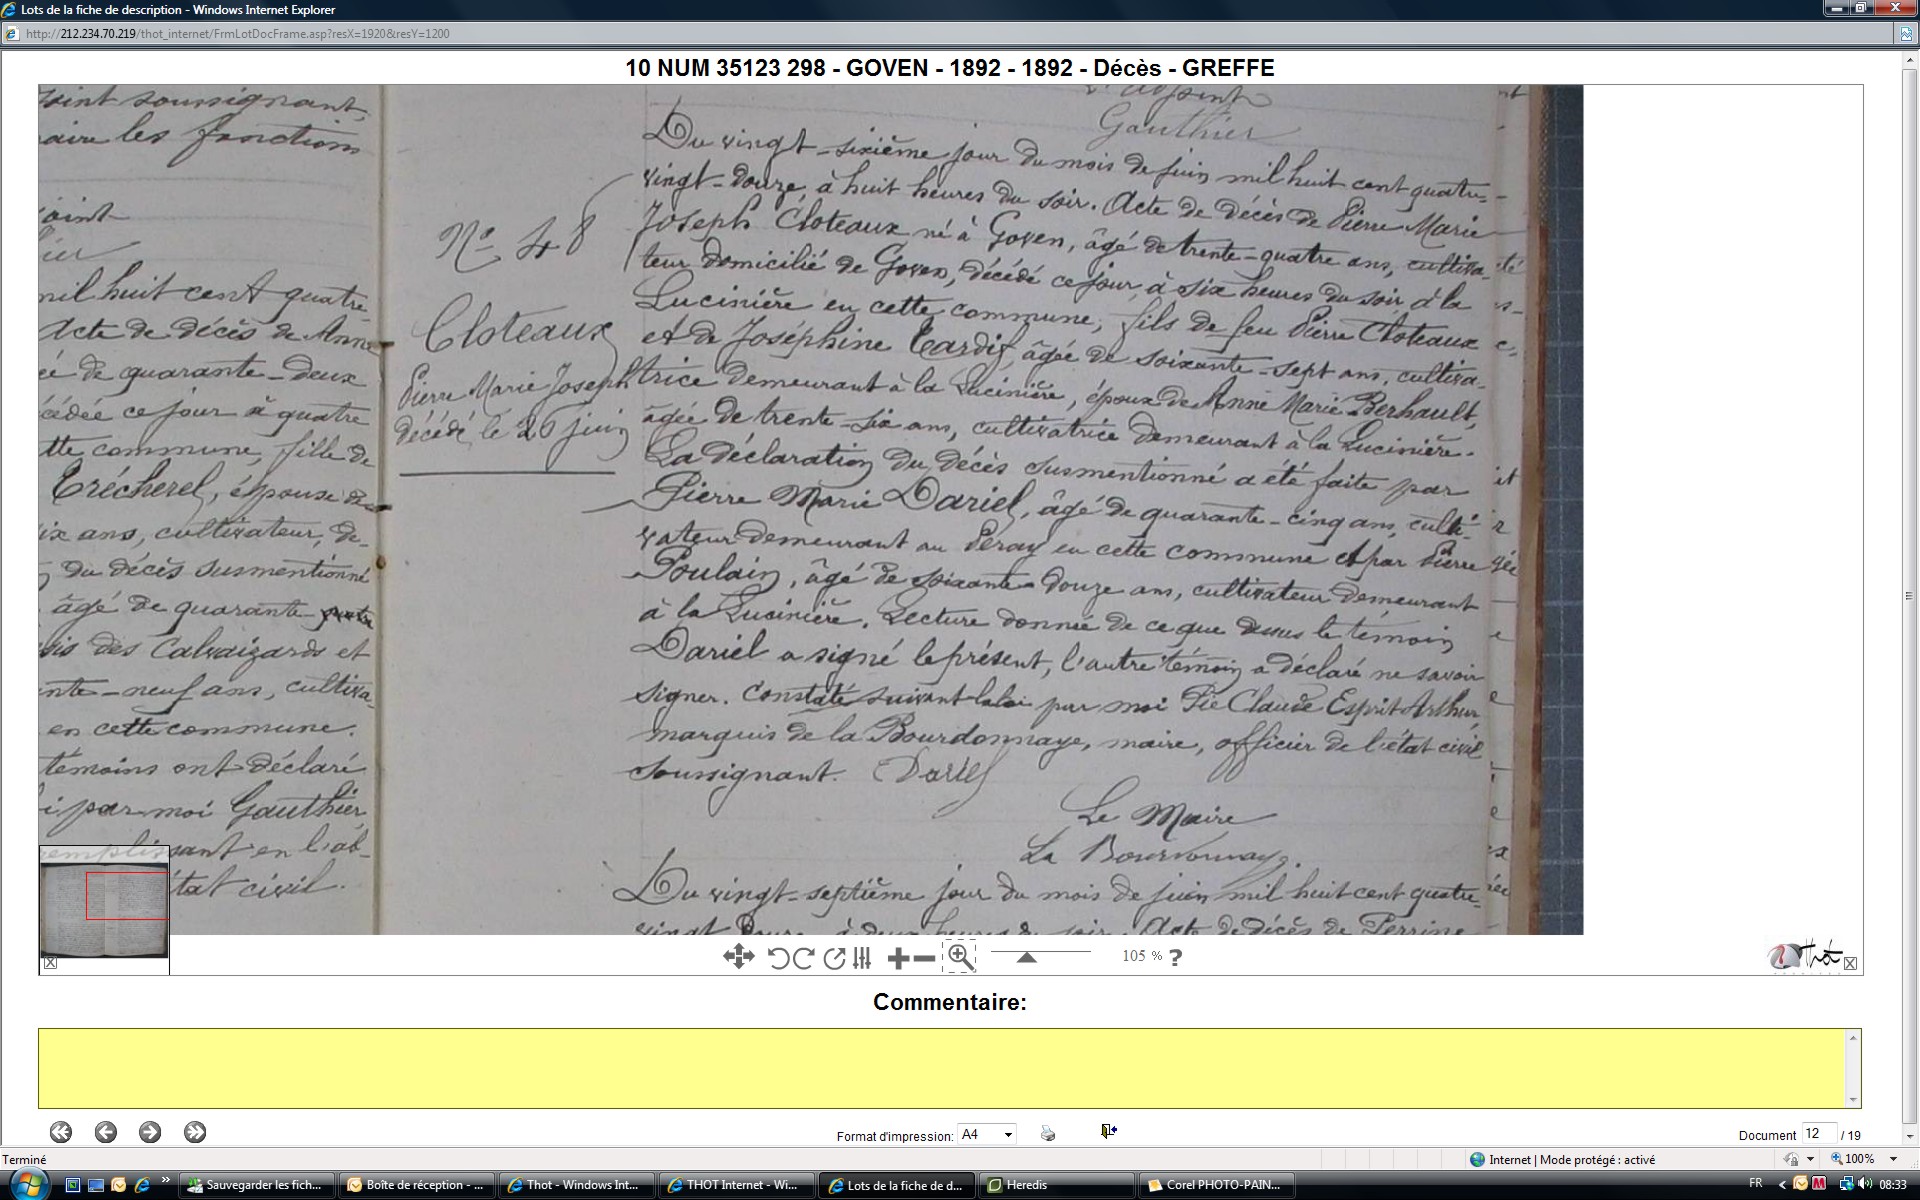 Lots de la fiche de description - Windows Internet Explorer
http://212.234.70.219/thot_internet/FrmLotDocFrame.asp?resX=1920&resY=1200
10 NUM 35123 298 - GOVEN - 1892 - 1892 - Décès - GREFFE
soussignant,
aire les fonctions
oint
mil huit cent quatre-
Acte de décès de Anne
ée de quarante-deux
cédée ce jour à quatre
tte commune, fille de
Trécherel, épouse de
ix ans, cultivateur, de-
du décès susmentionné
âgé de quarante
vis des Calvaizards et
nte-neuf ans, cultiva-
en cette commune.
témoins ont déclaré
i par moi Gauthier
remplissant en l'ab-
tat civil.
Nº 48
Cloteaux
Pierre Marie Joseph
décédé le 26 juin
l'adjoint
Gauthier
Du vingt-sixième jour du mois de juin mil huit cent quatre-
vingt-douze, à huit heures du soir. Acte de décès de Pierre Marie
Joseph Cloteaux né à Goven, âgé de trente-quatre ans, cultiva-
teur domicilié de Goven, décédé ce jour à six heures du soir à la
Lucinière en cette commune, fils de feu Pierre Cloteaux
et de Joséphine Tardif, âgée de soixante-sept ans, cultiva-
trice demeurant à la Lucinière, époux de Anne Marie Berhault,
âgée de trente-six ans, cultivatrice demeurant à la Lucinière.
La déclaration du décès susmentionné a été faite par
Pierre Marie Dariel, âgé de quarante-cinq ans, culti-
vateur demeurant au Peray en cette commune et par Pierre
Poulain, âgé de soixante-douze ans, cultivateur demeurant
à la Lucinière. Lecture donnée de ce que dessus le témoin
Dariel a signé le présent, l'autre témoin a déclaré ne savoir
signer. Constaté suivant la loi par moi Pie Claude Esprit Arthur
marquis de la Bourdonnaye, maire, officier de l'état civil
soussignant. Dariel
Le Maire
La Bourdonnaye.
Du vingt-septième jour du mois de juin mil huit cent quatre-
vingt douze, à deux heures du soir. Acte de décès de Perrine
105 % ?
Thot
Commentaire:
Format d'impression: A4
Document 12 / 19
Terminé
Internet | Mode protégé : activé
100%
Sauvegarder les fich...
Boîte de réception - ...
Thot - Windows Int...
THOT Internet - Wi...
Lots de la fiche de d...
Heredis
Corel PHOTO-PAIN...
FR
08:33